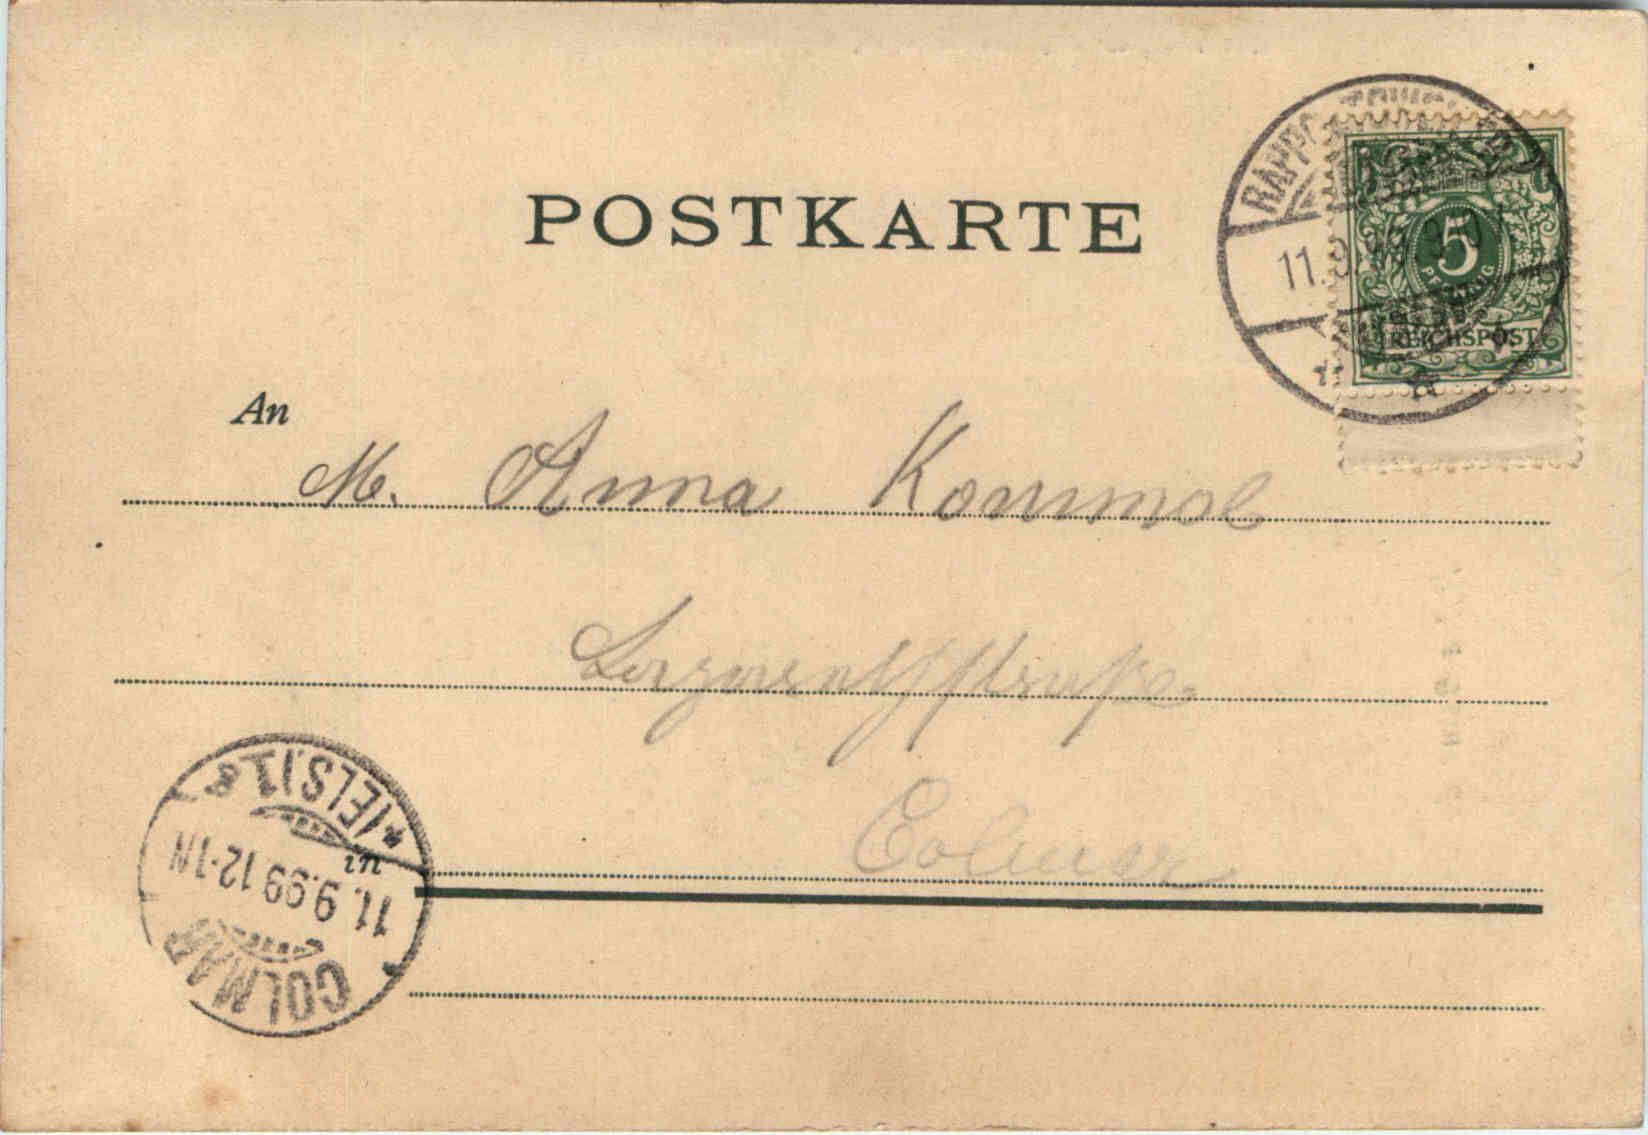 POSTKARTE
5
PFENNIG
REICHSPOST
11.9.99
An
M. Anna Kommol
Colmar
in
* (ELS) 1 a
11. 9.99 12-1N
COLMAR